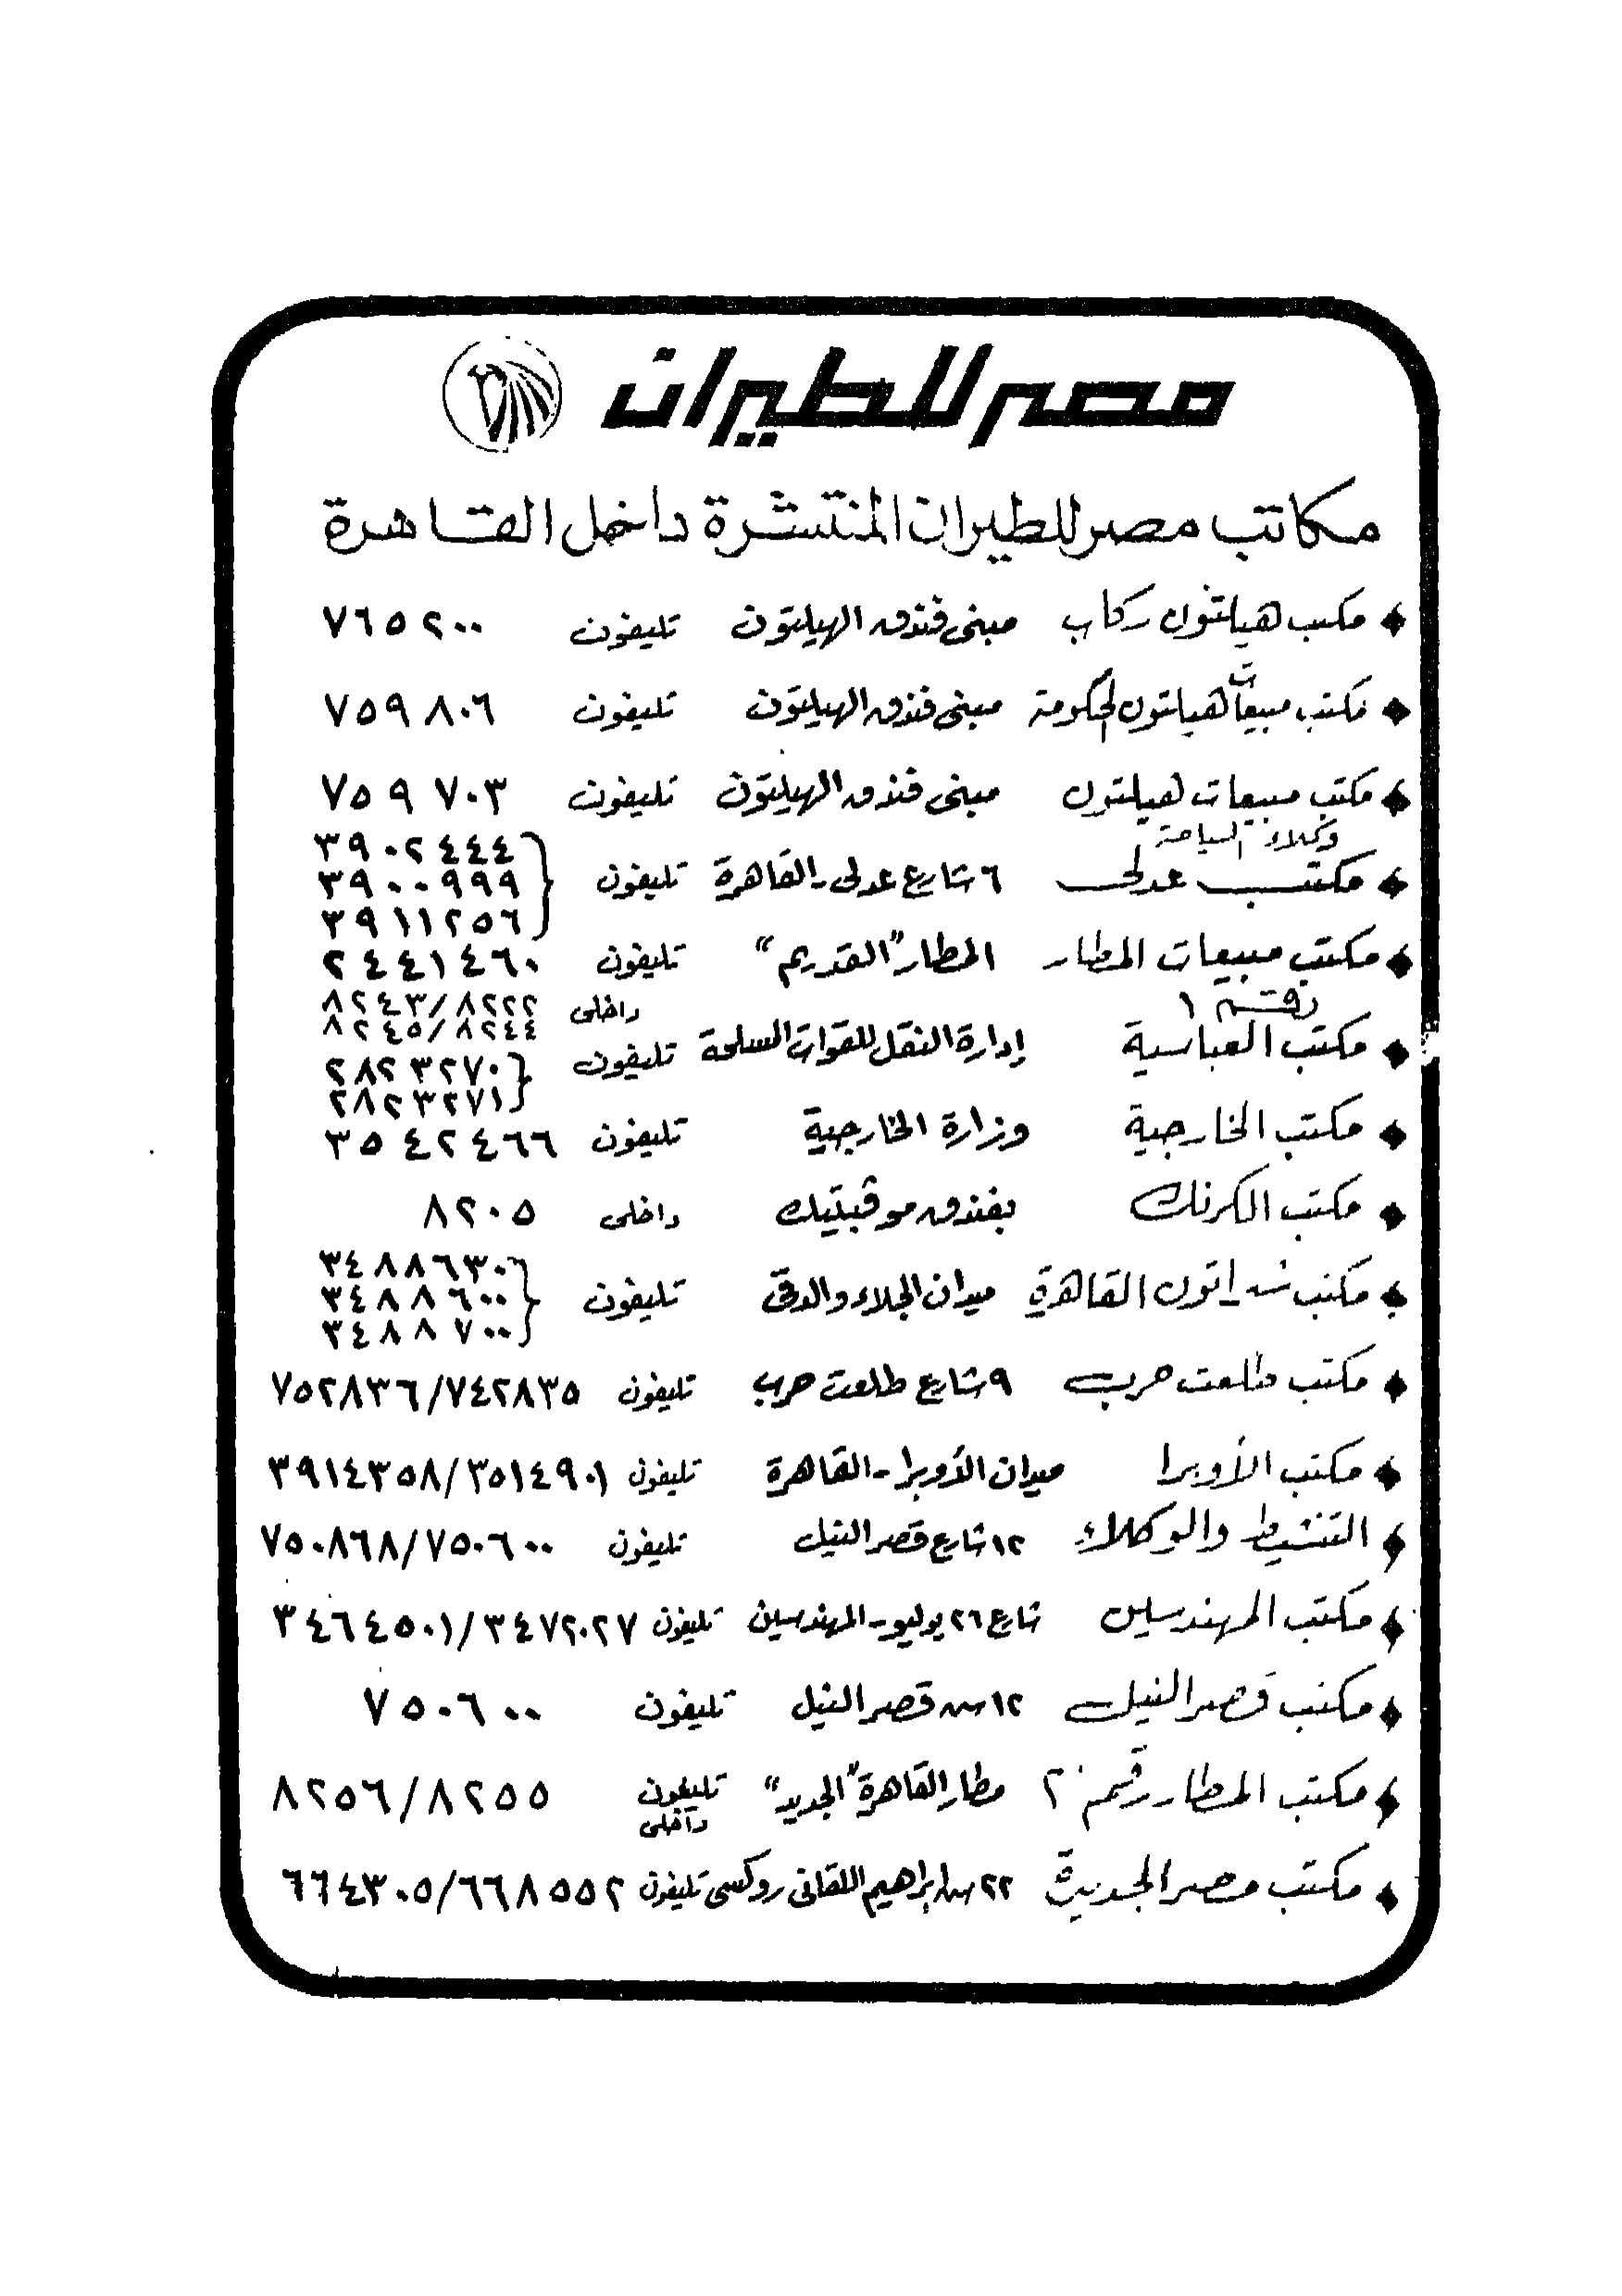 مصر للطيران
مكاتب مصر للطيران المنتشرة داخل القاهرة
مكتب هيلتون ركاب مبنى فندق الهيلتون تليفون ٧٦٥٢٠٠
مكتب مبيعات هيلتون الحكومة مبنى فندق الهيلتون تليفون ٧٥٩٨٠٦
مكتب مبيعات هيلتون مبنى فندق الهيلتون تليفون ٧٥٩٧٠٣
وكلاء السياحة
٣٩٠٢٤٤٤
مكتب عدلى ٦ شارع عدلى - القاهرة تليفون ٣٩٠٠٩٩٩
٣٩١١٢٥٦
مكتب مبيعات المطار المطار "القديم" تليفون ٢٤٤١٤٦٠
رقم ١ داخلى ٨٢٤٣/٨٢٢٢
٨٢٤٥/٨٢٤٤
مكتب العباسية إدارة النقل للقوات المسلحة تليفون ٢٨٢٣٢٧٠
٢٨٢٣٢٧١
مكتب الخارجية وزارة الخارجية تليفون ٣٥٤٢٤٦٦
مكتب الكرنك بفندق موفبنيك داخلى ٨٢٠٥
٣٤٨٨٦٣٠
مكتب شيراتون القاهرة ميدان الجلاء والدقى تليفون ٣٤٨٨٦٠٠
٣٤٨٨٧٠٠
مكتب طلعت حرب ٩ شارع طلعت حرب تليفون ٧٥٢٨٣٦/٧٤٢٨٣٥
مكتب الأوبرا ميدان الأوبرا - القاهرة تليفون ٣٩١٤٣٥٨/٣٥١٤٩٠١
التنشيط والوكلاء ١٢ شارع قصر النيل تليفون ٧٥٠٨٦٨/٧٥٠٦٠٠
مكتب المهندسين شارع ٢٦ يوليو - المهندسين تليفون ٣٤٦٤٥٠١/٣٤٧٢٠٢٧
مكتب قصر النيل ١٢ ش قصر النيل تليفون ٧٥٠٦٠٠
مكتب المطار رقم ٢ مطار القاهرة "الجديد" تليفون ٨٢٥٦/٨٢٥٥
داخلى
مكتب مصر الجديدة ٢٢ ش ابراهيم اللقانى روكسى تليفون ٦٦٤٣٠٥/٦٦٨٥٥٢